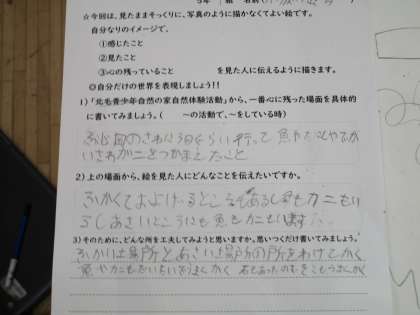 5年 組 名前
☆今回は、見たままそっくりに、写真のように描かなくてよい絵です。
自分なりのイメージで、
①感じたこと
②見たこと
③心の残っていること を見た人に伝えるように描きます。
◎自分だけの世界を表現しましょう!!
1)「北毛青少年自然の家自然体験活動」から、一番心に残った場面を具体的
に書いてみましょう。( ~の活動で、~をしている時)
行って 魚や
いさわガニをつかまえたこと
2)上の場面から、絵を見た人にどんなことを伝えたいですか。
ふかくておよげるところ カニもい
るしあさいところにも魚もカニもいます
3)そのために、どんな所を工夫してみようと思いますか。思いつくだけ書いてみましょう。
ふかい場所とあさい場所の所をわけてかく
魚やカニも かく 石も かく